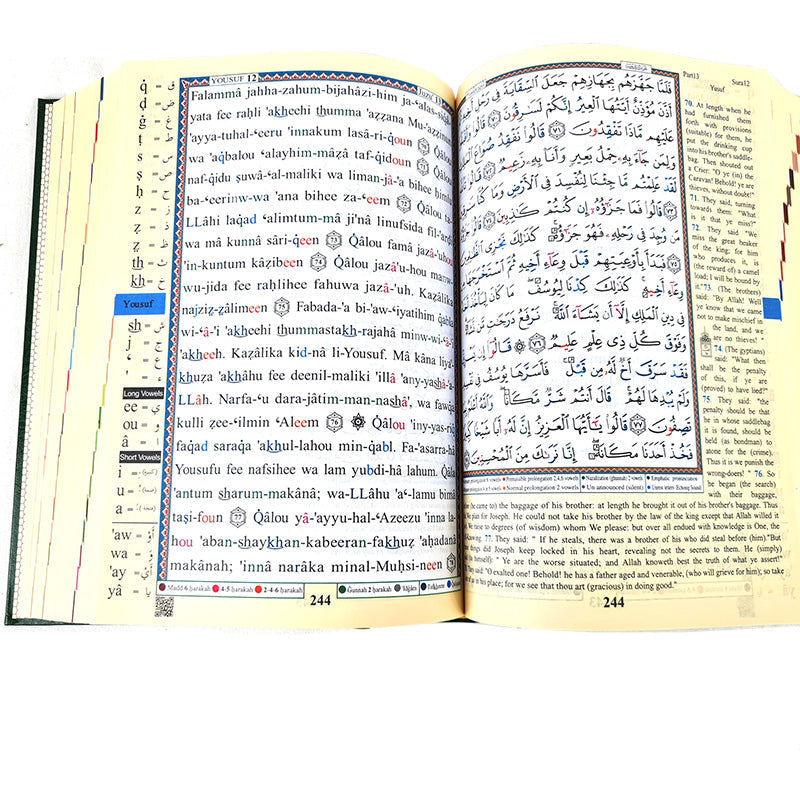 YOUSUF 12
Juzu' 13
Falammâ jahha-zahum-bijahâzi-him ja-'alas-siqâ
yata fee raḥli 'akheehi thumma 'azzana Mu-'azzinun
'ayya-tuhal-'eeru 'innakum lasâ-ri-qoun 70 Qâlou
wa 'aqbalou 'alayhim-mâzâ taf-qidoun 71
naf-qidu ṣuwâ-'al-maliki wa liman-jâ-'a bihee ḥimlu
ba-'eerinw-wa 'ana bihee za-'eem 72 Qâlou
LLâhi laqad 'alimtum-mâ ji'nâ linufsida fil-'ard
wa mâ kunnâ sâri-qeen 73 Qâlou famâ jazâ-'uhou
'in-kuntum kâzibeen 74 Qâlou jazâ'u-hou manw-
wu-jida fee raḥlihee fahuwa jazâ-'uh. Kazâlika
najziz-zâlimeen 75 Fabada-'a bi-'aw-'iyatihim qabla
wi-'â-'i 'akheehi thummastakh-rajahâ minw-wi-'â-'i
'akheeh. Kazâlika kid-nâ li-Yousuf. Mâ kâna liya'-
khuza 'akhâhu fee deenil-maliki 'illâ 'any-yashâ-'a-
LLâh. Narfa-'u dara-jâtim-man-nashâ', wa fawqa
kulli zee-'ilmin 'Aleem 76 Qâlou 'iny-yas-riq
faqad saraqa 'akhul-lahou min-qabl. Fa'asarra-hâ
Yousufu fee nafsihee wa lam yubdi-hâ lahum. Qâla
'antum sharum-makânâ; wa-LLâhu 'a'-lamu bimâ
taṣi-foun 77 Qâlou yâ-'ayyu-hal-'Azeezu 'inna la-
hou 'aban-shaykhan-kabeeran-fakhuz 'aḥadanâ
makânah; 'innâ narâka minal-Muḥsi-neen 78
q̇ = ق
ḍ = ض
ġ = غ
ṭ = ط
ṣ = ص
ḥ = ح
z = ذ
ẓ = ظ
th = ث
kh = خ
Yousuf
sh = ش
j = ج
' = ع
' = ء
Long Vowels
ee = ي
ou = و
â = ا
Short Vowels
i = (كسرة)
u = (ضمة)
a = (فتحة)
'aw = أَوْ
wa = وَ
'ay = أَيْ
yâ = يا
Madd 6 harakah 4-5 harakah 2-4-6 harakah Gunnah 2 harakah Idġâm Tafkheem
244
فَلَمَّا جَهَّزَهُم بِجَهَازِهِمْ جَعَلَ ٱلسِّقَايَةَ فِى رَحْلِ أَخِيهِ
أَذَّنَ مُؤَذِّنٌ أَيَّتُهَا ٱلْعِيرُ إِنَّكُمْ لَسَٰرِقُونَ ٧٠ قَالُوا۟
عَلَيْهِم مَّاذَا تَفْقِدُونَ ٧١ قَالُوا۟ نَفْقِدُ صُوَاعَ
وَلِمَن جَآءَ بِهِۦ حِمْلُ بَعِيرٍ وَأَنَا۠ بِهِۦ زَعِيمٌ ٧٢
لَقَدْ عَلِمْتُم مَّا جِئْنَا لِنُفْسِدَ فِى ٱلْأَرْضِ وَمَا كُنَّا
٧٣ قَالُوا۟ فَمَا جَزَٰٓؤُهُۥٓ إِن كُنتُمْ كَٰذِبِينَ
مَن وُجِدَ فِى رَحْلِهِۦ فَهُوَ جَزَٰٓؤُهُۥ ۚ كَذَٰلِكَ نَجْزِى
٧٥ فَبَدَأَ بِأَوْعِيَتِهِمْ قَبْلَ وِعَآءِ أَخِيهِ ثُمَّ ٱسْتَخْرَجَهَا
وِعَآءِ أَخِيهِ ۚ كَذَٰلِكَ كِدْنَا لِيُوسُفَ ۖ
فِى دِينِ ٱلْمَلِكِ إِلَّآ أَن يَشَآءَ ٱللَّهُ ۚ نَرْفَعُ دَرَجَٰتٍ
وَفَوْقَ كُلِّ ذِى عِلْمٍ عَلِيمٌ ٧٦ قَالُوٓا۟ إِن
فَقَدْ سَرَقَ أَخٌ لَّهُۥ مِن قَبْلُ ۚ فَأَسَرَّهَا يُوسُفُ
وَلَمْ يُبْدِهَا لَهُمْ ۚ قَالَ أَنتُمْ شَرٌّ مَّكَانًا ۖ وَٱللَّهُ
تَصِفُونَ ٧٧ قَالُوا۟ يَٰٓأَيُّهَا ٱلْعَزِيزُ إِنَّ لَهُۥٓ أَبًا شَيْخًا
فَخُذْ أَحَدَنَا مَكَانَهُۥٓ ۖ إِنَّا نَرَىٰكَ مِنَ ٱلْمُحْسِنِينَ
prolongation 6 vowels Permissible prolongation 2,4,6 vowels Nazalization (ghunnah) 2 vowels Emphatic pronunciation
prolongation 4 or 5 vowels Normal prolongation 2 vowels Un announced (silent)
Part13 Sura12
Yusuf
70. At length when he
had furnished them
forth with provisions
(suitable) for them, he
put the drinking cup
into his brother's saddle-
bag. Then shouted out
a Crier: "O ye (in) the
Caravan! Behold! ye are
thieves, without doubt!"
71. They said, turning
towards them: "What
is it that ye miss?"
72. They said "We
miss the great beaker
of the king; for him
who produces it, is
(the reward of) a camel
load; I will be bound by
it."73. (The brothers)
said: "By Allah! Well
ye know that we came
not to make mischief in
the land, and we
are no thieves! "
74. (The gyptians)
said: "What then
shall be the penalty
of this, if ye are
(proved) to have lied?"
75. They said: "the
penalty should be that
he in whose saddle-bag
it is found, should be
held (as bondman) to
atone for the (crime).
Thus it is we punish the
wrong-doers! " 76. So
he began (the search)
with their baggage,
(he came to) the baggage of his brother: at length he brought it out of his brother's baggage. Thus
We plan for Joseph. He could not take his brother by the law of the king except that Allah willed it
We raise to degrees (of wisdom) whom We please: but over all endued with knowledge is One, the
Knowing. 77. They said: " If he steals, there was a brother of his who did steal before (him)."But
things did Joseph keep locked in his heart, revealing not the secrets to them. He (simply)
(to himself): " Ye are the worse situated; and Allah knoweth best the truth of what ye assert!"
They said: "O exalted one! Behold! he has a father aged and venerable, (who will grieve for him); so take
of us in his place; for we see that thou art (gracious) in doing good."
244